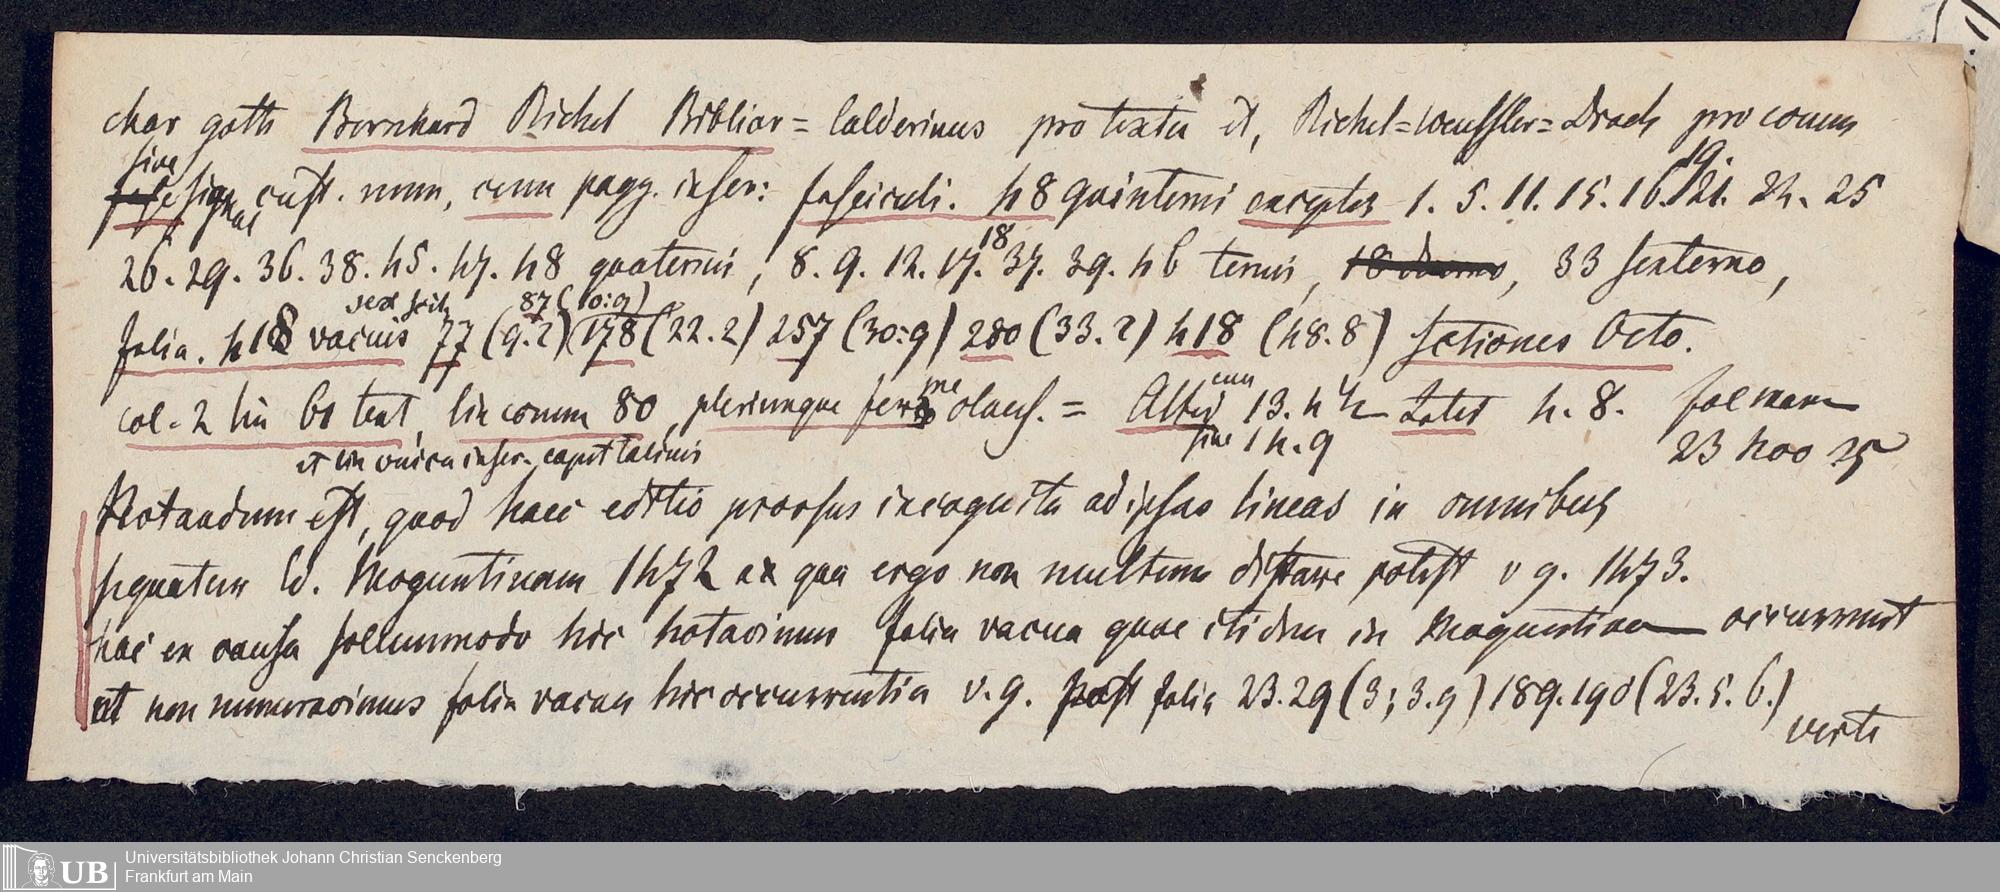 char goth Bernhard Richel Bibliar = Calderinus pro textu et, Richel = Wenssler = Drach pro comm
sine sign cust. num, cum pagg. inscr: fasciculi. 48 quinterni exceptis 1. 5. 11. 15. 16. 19. 21. 22. 25
26. 29. 36. 38. 45. 47. 48 quaternis, 8. 9. 12. 17. 18 37. 39. 46 ternis, 33 sexterno,
folia. 418 vacuis sex scil. 77 (9.2) 87 (10:9) 178 (22.2) 257 (30:9) 280 (33.2) 418 (48.8) sectiones Octo.
col. 2 lin 61 text, lin comm 80, plerumque ferme = Alt cum 13. 4 Lat 4. 8. fol
et lin unica inscr. capit talinis sine 14.9 23 400 25
Notandum est, quod haec editio prorsus incognita ad ipsas lineas in omnibus
sequatur Ed. Moguntinam 1472 ex qua ergo non multum distare potest v g. 1473.
hac ex causa solummodo hic notavimus folia vacua quae itidem in Moguntina occurrunt
et non numeravimus folia vacua hic occurrentia v. g. post folia 23. 29 (3; 3.9) 189. 190 (23. 5. 6.)
verte
UB Universitätsbibliothek Johann Christian Senckenberg
Frankfurt am Main